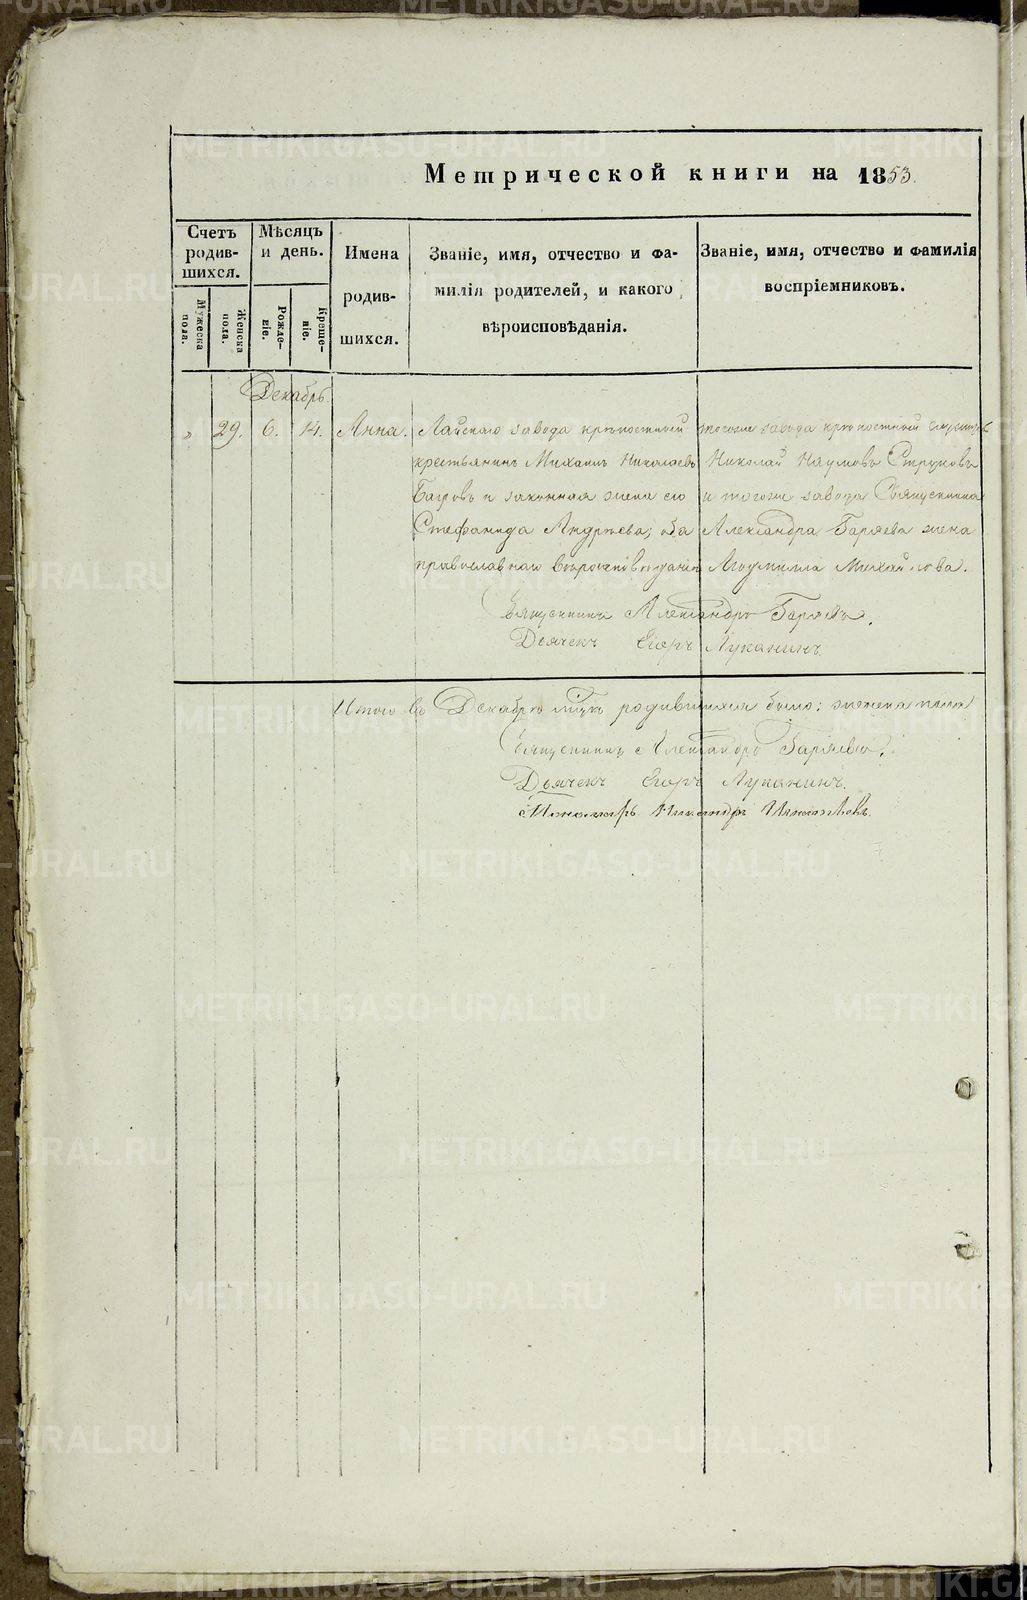 Метрической книги на 1853.
Счетъ родив-шихся.
Мѣсяцъ и день.
Имена родив-шихся.
Званіе, имя, отчество и фа-
милія родителей, и какого
вѣроисповѣданія.
Званіе, имя, отчество и фамилія
воспріемниковъ.
Мужеска пола.
Женска пола.
Рожде-ніе.
Креще-ніе.
Декабрь.
" 29. 6. 14. Анна.
Лайскаго завода крѣпостный
крестьянинъ Михаилъ Николаевъ
Багровъ и законная жена его
Стефанида Андрѣева; оба
православнаго вѣроисповѣданія
тогоже завода крѣпостный
Николай Наумовъ
и тогоже завода Священника
Александра Гаряева жена
Людмилла Михайлова.
Священникъ Александръ Гаряевъ.
Дьячекъ Егоръ Луканинъ.
Итого въ Декабрѣ родившихся было: женска пола
Священникъ Александръ Гаряевъ.
Дьячекъ Егоръ Луканинъ.
Пономарь
METRIKI.GASO-URAL.RU